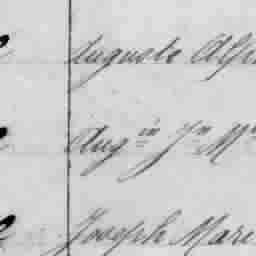 Auguste Alf
Aug in Jn M
Joseph Mari